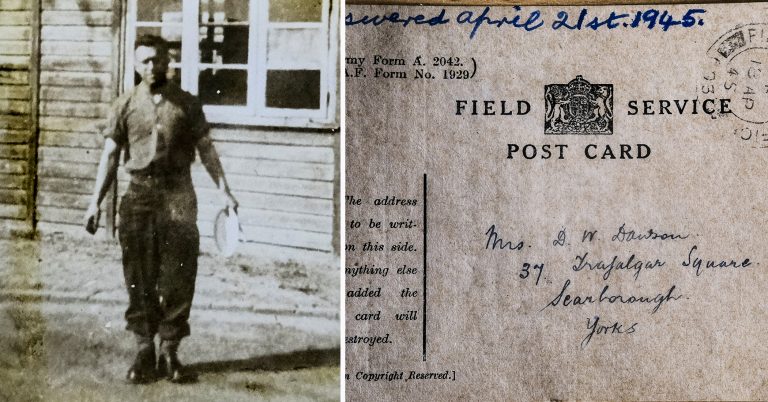 swered april 21st. 1945.
my Form A. 2042.
A.F. Form No. 1929)
FIELD SERVICE
POST CARD
The address
to be writ-
n this side.
nything else
added the
card will
estroyed.
n Copyright Reserved.]
Mrs. D. W. Dawson.
37 Trafalgar Square.
Scarborough.
Yorks
FI
18 AP
45